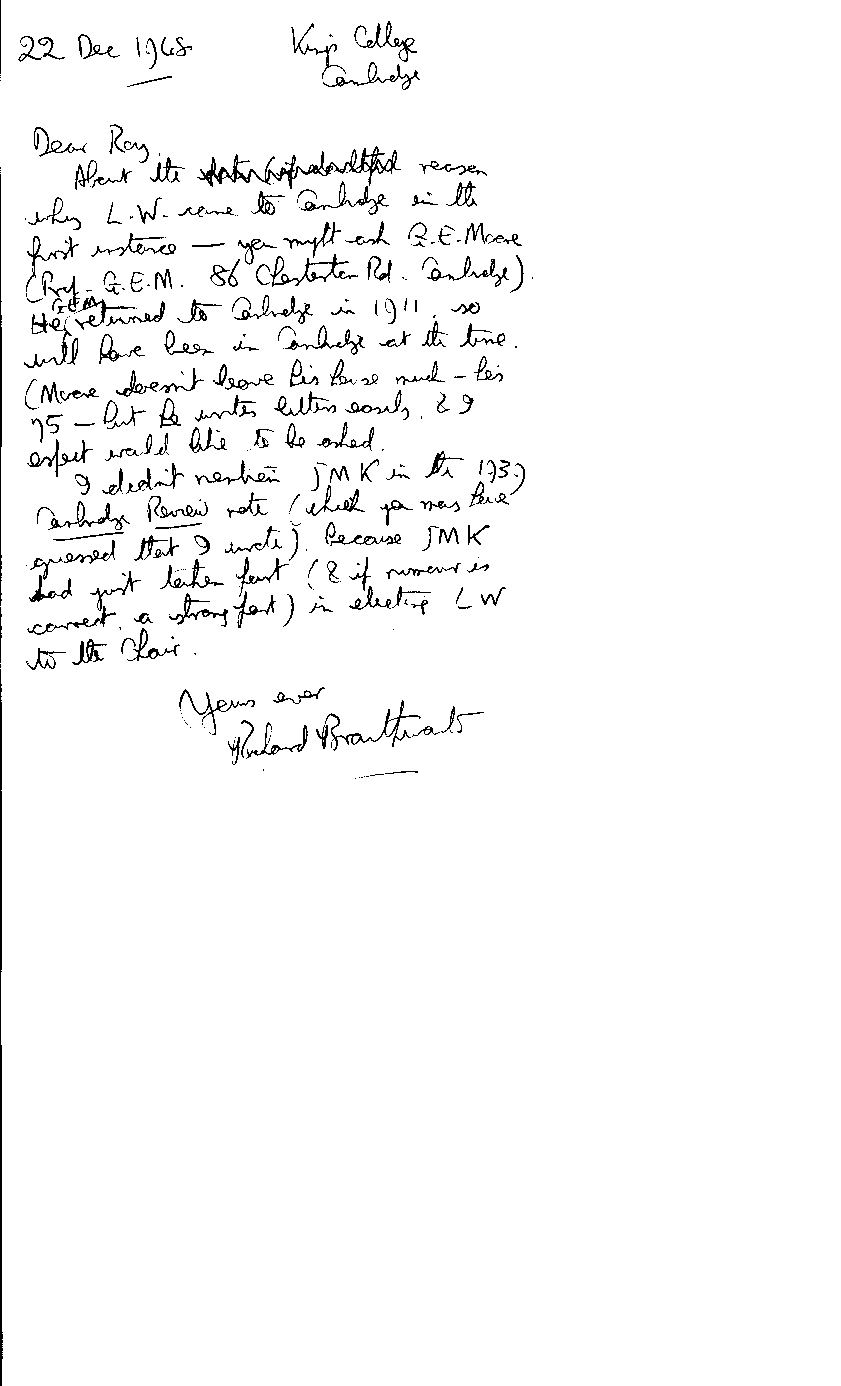 22 Dec 1948
King's College
Cambridge
Dear Roy,
About the reason
why L.W. came to Cambridge in the
first instance — you might ask G.E. Moore
(Prof. G.E.M. 86 Chesterton Rd. Cambridge).
G.E.M.
He returned to Cambridge in 1911, so
will have been in Cambridge at the time.
(Moore doesn't leave his house much – he's
75 – but he writes letters easily, & I
expect would like to be asked.
I didn't mention JMK in the 1939
Cambridge Review note (which you may have
guessed that I wrote), because JMK
had just taken part (& if rumour is
correct, a strong part) in electing LW
to the Chair.
Yours ever
Richard Braithwaite